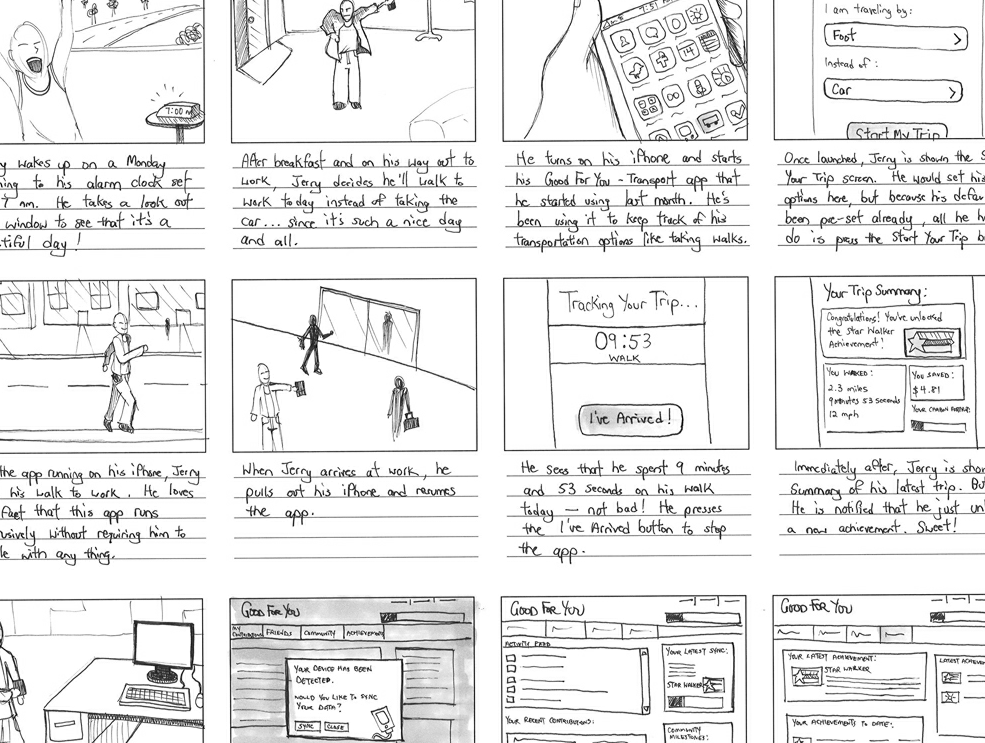 7:00 AM
y wakes up on a Monday
ning to his alarm clock set
7 am. He takes a look out
window to see that it's a
tiful day!
After breakfast and on his way out to
work, Jerry decides he'll walk to
work today instead of taking the
car... since it's such a nice day
and all.
7:51
14
He turns on his iPhone and starts
his Good For You - Transport app that
he started using last month. He's
been using it to keep track of his
transportation options like taking walks.
I am traveling by:
Foot
Instead of:
Car
Start My Trip
Once launched, Jerry is shown the S
Your Trip screen. He would set his
options here, but because his defau
been pre-set already, all he h
do is press the Start Your Trip b
the app running on his iPhone, Jerry
his walk to work. He loves
fact that this app runs
usively without requiring him to
le with any thing.
When Jerry arrives at work, he
pulls out his iPhone and resumes
the app.
Tracking Your Trip...
09:53
WALK
I've Arrived!
He sees that he spent 9 minutes
and 53 seconds on his walk
today — not bad! He presses
the I've Arrived button to stop
the app.
Your Trip Summary:
Congratulations! You've unlocked
the Star Walker
Achievement!
YOU WALKED:
2.3 miles
9 minutes 53 seconds
12 mph
YOU SAVED:
$4.81
YOUR CARBON
Immediately after, Jerry is show
Summary of his latest trip. But
He is notified that he just un
a new achievement. Sweet!
GOOD FOR YOU
MY
FRIENDS
COMMUNITY
ACHIEVEMENT
YOUR DEVICE HAS BEEN
DETECTED.
WOULD YOU LIKE TO SYNC
YOUR DATA?
SYNC
CLOSE
GOOD FOR YOU
ACTIVITY FEED
YOUR LATEST SYNC:
STAR WALKER
YOUR RECENT CONTRIBUTIONS:
COMMUNITY
MILESTONES:
GOOD FOR YOU
YOUR LATEST ACHIEVEMENT:
STAR WALKER
LATEST ACHIEVEM
YOUR ACHIEVEMENTS TO DATE: